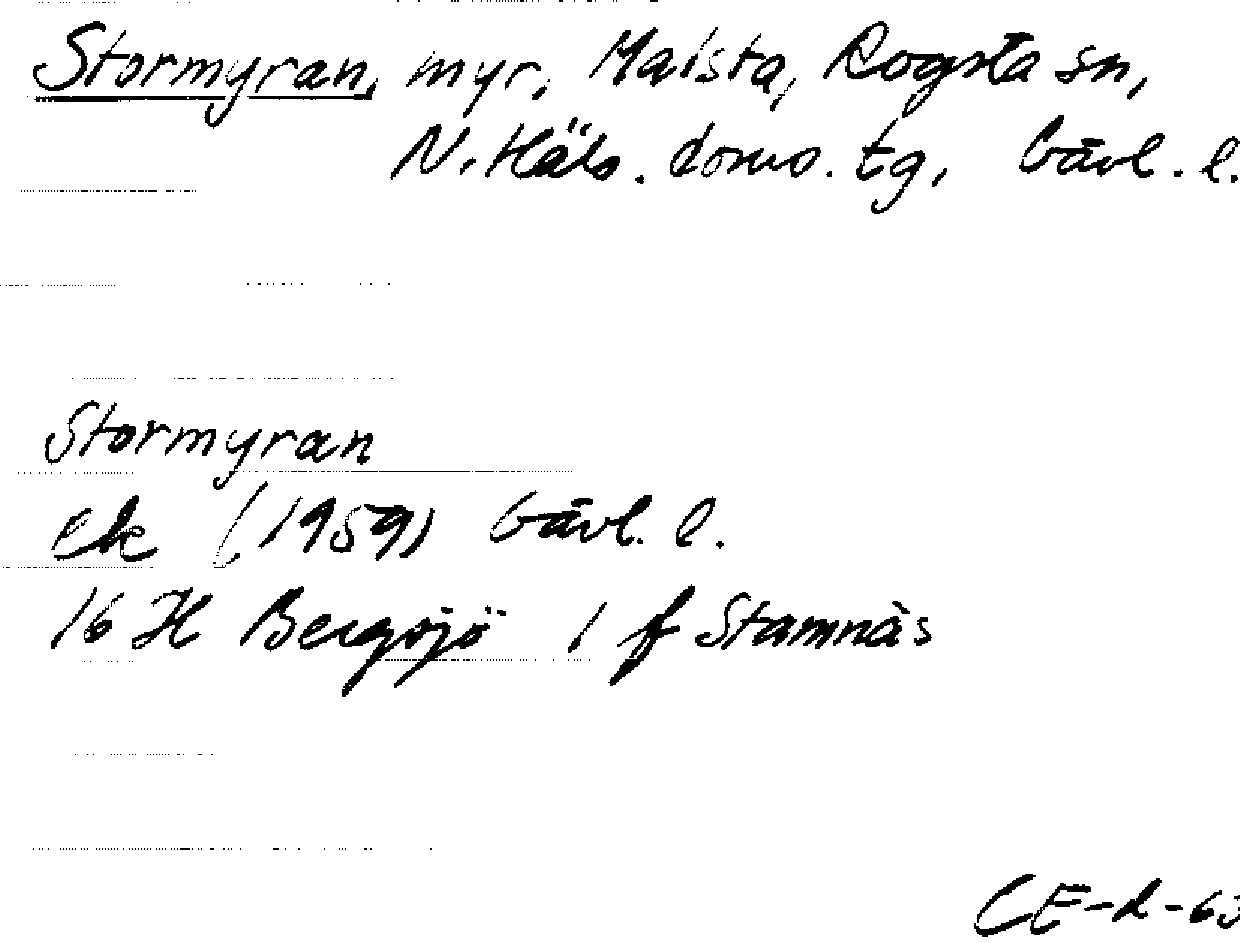 Stormyran, myr, Maista, Rogsta sn,
N. Häls. doms. tg, Gävl. l.
Stormyran
Ek (1959) Gävl. l.
16 H Bergsjö 1 f Stamnäs
CE-d-63